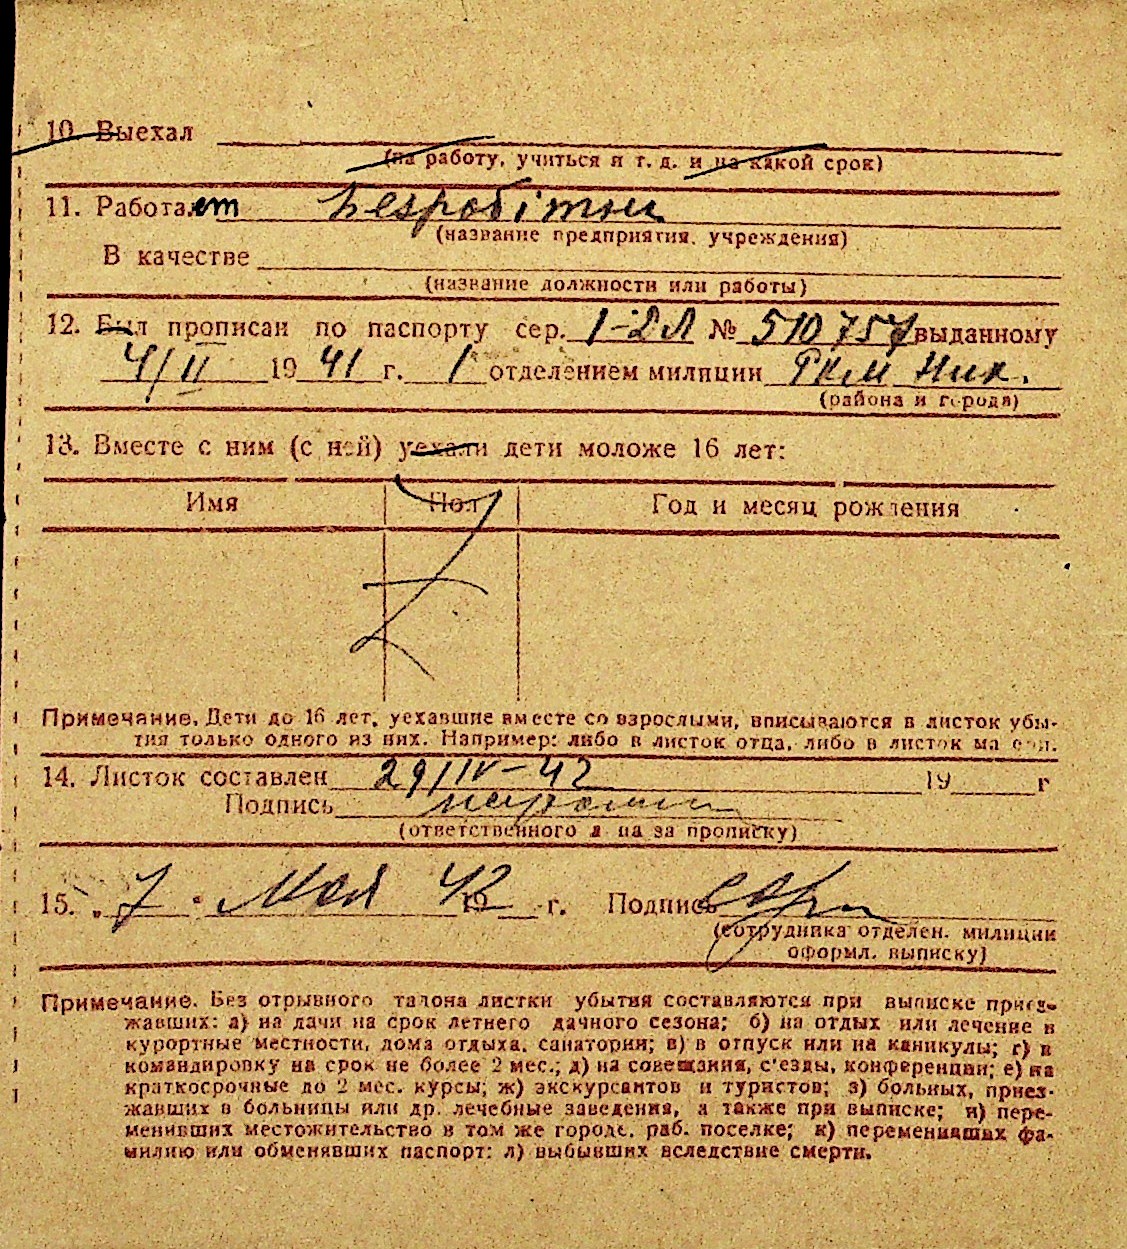 10. Выехал
(на работу, учиться и т. д. и на какой срок)
11. Работает Безробітни
(название предприятия, учреждения)
В качестве
(название должности или работы)
12. Был прописан по паспорту сер. 1-2Л № 510757 выданному
4/II 1941 г. 1 отделением милиции РКМ Ник.
(района и города)
13. Вместе с ним (с ней) уехали дети моложе 16 лет:
Имя Пол Год и месяц рождения
Примечание. Дети до 16 лет, уехавшие вместе со взрослыми, вписываются в листок убы-
тия только одного из них. Например: либо в листок отца, либо в листок матери.
14. Листок составлен 29/IV-42 19 г
Подпись
(ответственного лица за прописку)
15. „7" Мая 42 19 г. Подпись
(сотрудника отделен. милиции
оформл. выписку)
Примечание. Без отрывного талона листки убытия составляются при выписке приез-
жавших: а) на дачи на срок летнего дачного сезона; б) на отдых или лечение в
курортные местности, дома отдыха, санатории; в) в отпуск или на каникулы; г) в
командировку на срок не более 2 мес.; д) на совещания, с'езды, конференции; е) на
краткосрочные до 2 мес. курсы; ж) экскурсантов и туристов; з) больных, приез-
жавших в больницы или др. лечебные заведения, а также при выписке; и) пере-
менивших местожительство в том же городе, раб. поселке; к) переменивших фа-
милию или обменявших паспорт; л) выбывших вследствие смерти.